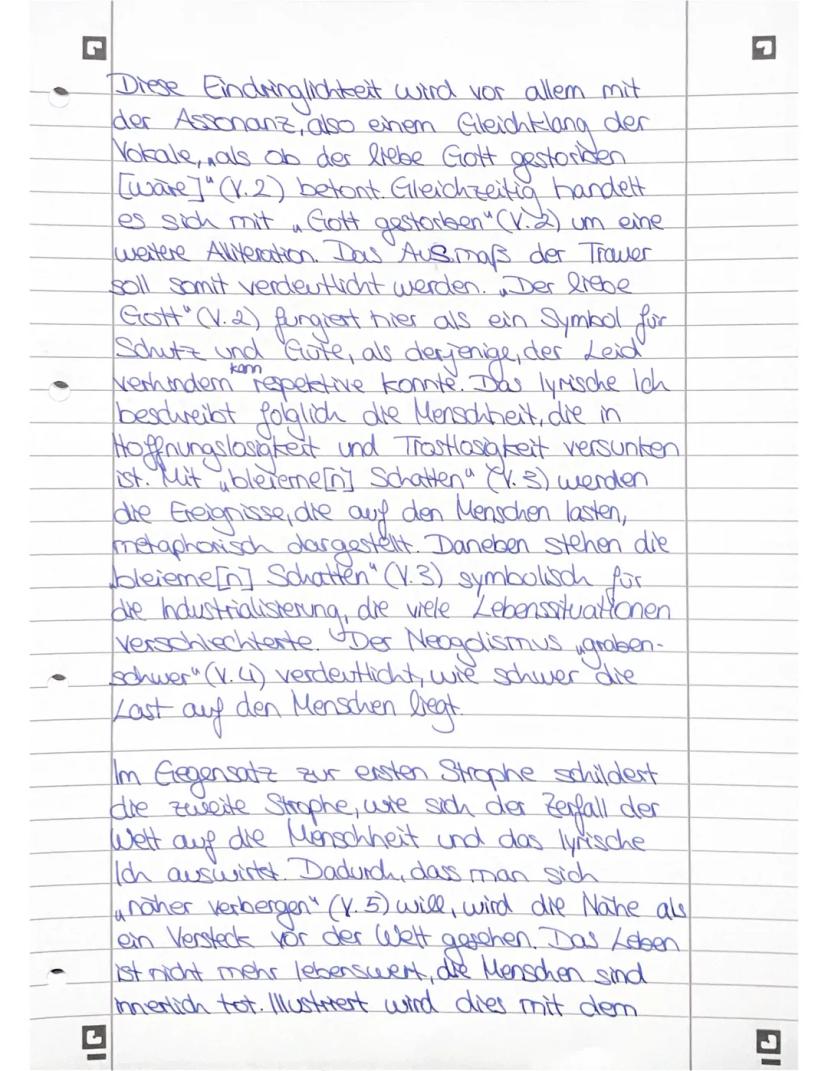 Diese Eindringlichkeit wird vor allem mit
der Assonanz, also einem Gleichklang der
Vokale, „als ob der liebe Gott gestorben
[wäre]" (V.2) betont. Gleichzeitig handelt
es sich mit „Gott gestorben" (V.2) um eine
weitere Alliteration. Das Ausmaß der Trauer
soll somit verdeutlicht werden. „Der liebe
Gott" (V.2) fungiert hier als ein Symbol für
Schutz und Güte, als derjenige, der Leid
verhindern kann respektive konnte. Das lyrische Ich
beschreibt folglich die Menschheit, die in
Hoffnungslosigkeit und Trostlosigkeit versunken
ist. Mit „bleierne[n] Schatten" (V.3) werden
die Ereignisse, die auf den Menschen lasten,
metaphorisch dargestellt. Daneben stehen die
„bleierne[n] Schatten" (V.3) symbolisch für
die Industrialisierung, die viele Lebenssituationen
verschlechterte. Der Neogolismus „graben-
schwer" (V.4) verdeutlicht, wie schwer die
Last auf den Menschen liegt.
Im Gegensatz zur ersten Strophe schildert
die zweite Strophe, wie sich der Zerfall der
Welt auf die Menschheit und das lyrische
Ich auswirkt. Dadurch, dass man sich
„näher verbergen" (V.5) will, wird die Nähe als
ein Versteck vor der Welt gesehen. Das Leben
ist nicht mehr lebenswert, die Menschen sind
innerlich tot. Illustriert wird dies mit dem